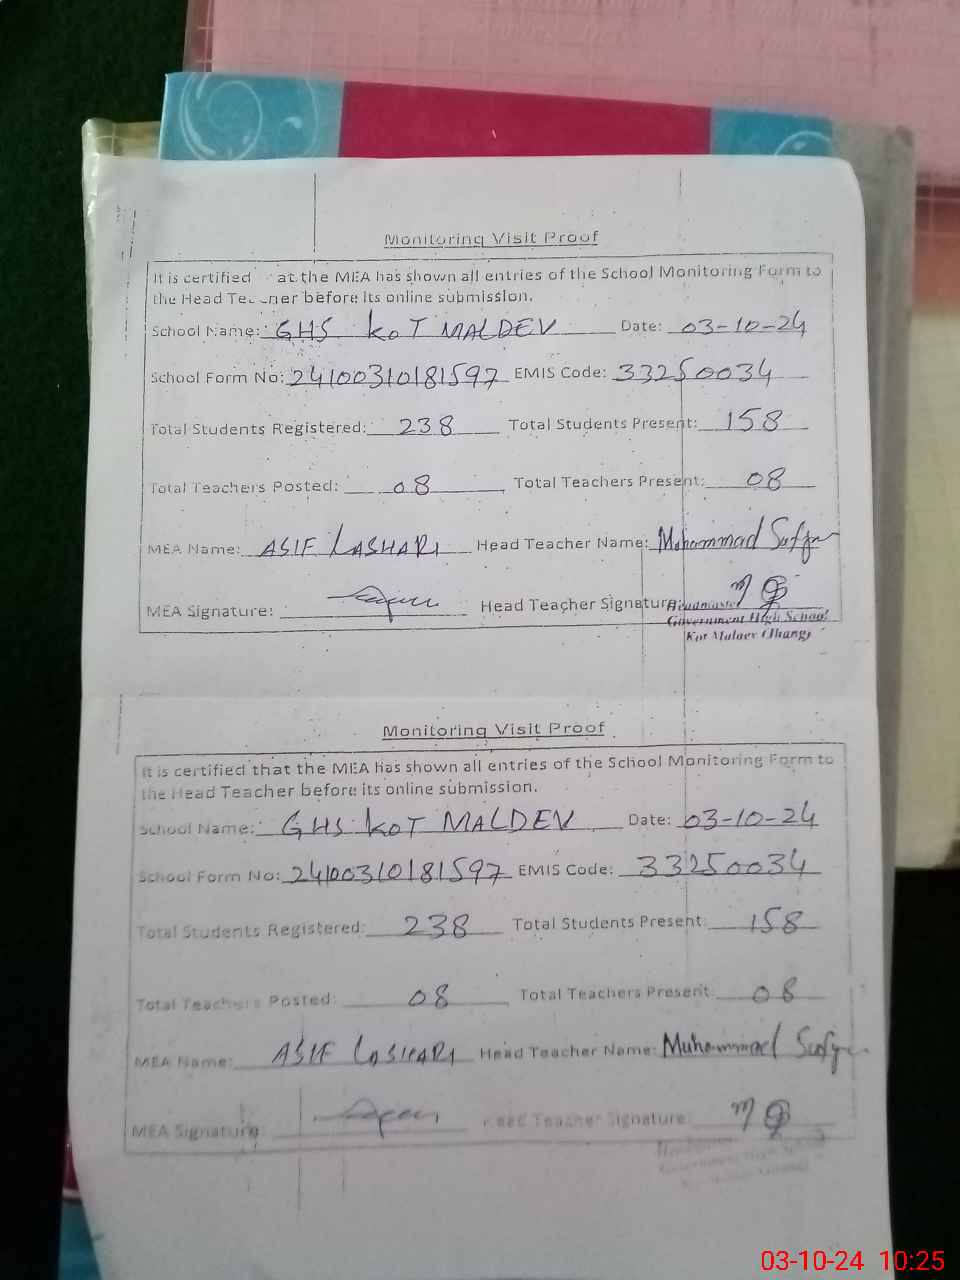 Monitoring Visit Proof
It is certified at the MEA has shown all entries of the School Monitoring Form to
the Head Teacher before its online submission.
School Name: GHS KOT MALDEV Date: 03-10-24
School Form No: 24100310181597 EMIS Code: 33250034
Total Students Registered: 238 Total Students Present: 158
Total Teachers Posted: 08 Total Teachers Present: 08
MEA Name: ASIF LASHARI Head Teacher Name: Mohammad
MEA Signature: Head Teacher Signature:
Headmaster
Government High School
Kot Maldev (Jhang)
Monitoring Visit Proof
It is certified that the MEA has shown all entries of the School Monitoring Form to
the Head Teacher before its online submission.
School Name: GHS KOT MALDEV Date: 03-10-24
School Form No: 24100310181597 EMIS Code: 33250034
Total Students Registered: 238 Total Students Present: 158
Total Teachers Posted: 08 Total Teachers Present: 08
MEA Name: ASIF LASHARI Head Teacher Name: Muhammad
MEA Signature: Head Teacher Signature:
Government High
03-10-24 10:25